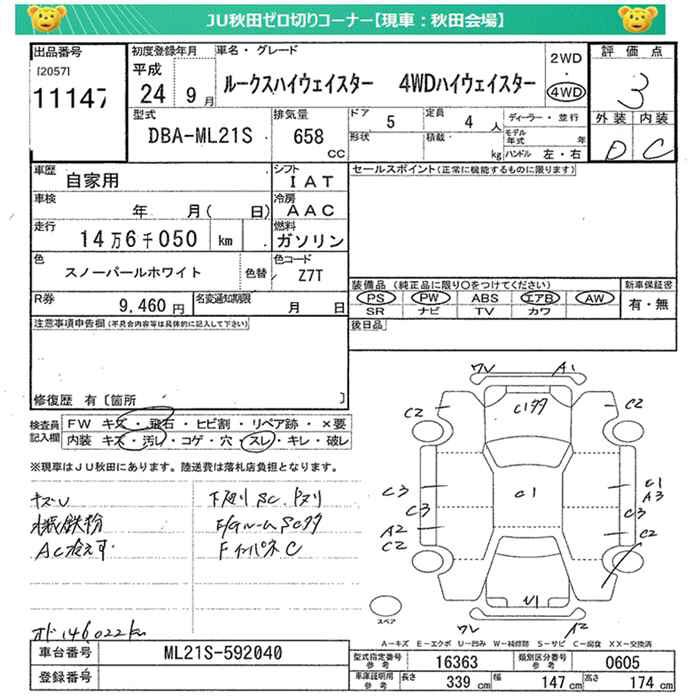 JU秋田ゼロ切りコーナー【現車：秋田会場】
出品番号
[2057]
11147
初度登録年月
平成
24 9月
車名・グレード
ルークスハイウェイスター 4WDハイウェイスター
2WD
・
4WD
評価点
3
外装 内装
D C
型式
DBA-ML21S
排気量
658
CC
ドア
5
形状
定員
4人
積載
kg
ディーラー・並行
モデル年式 年
ハンドル 左・右
車歴
自家用
シフト
IAT
車検
年 月( 日)
冷房
AAC
走行
14万6千050 km
燃料
ガソリン
色
スノーパールホワイト
色替
色コード
Z7T
R券
9,460円
名変通知期限
月 日
セールスポイント(正常に機能するものに限ります)
装備品 (純正品に限り〇をつけてください)
PS PW ABS エアB AW
SR ナビ TV カワ
新車保証書
有・無
後日品
注意事項申告欄(不具合内容等は具体的に記入して下さい)
修復歴 有〔箇所 〕
検査員記入欄
FW キズ・飛石・ヒビ割・リペア跡・×要
内装 キズ・汚レ・コゲ・穴・スレ・キレ・破レ
※現車はJU秋田にあります。陸送費は落札店負担となります。
キズU
AC冷えず
F インパネ C
146,022km
WV A1
C2 C2
C1
C3 C1
A3
C3 C3
A2 C2
C2
U1
WV A2
スペア
A－キズ E－エクボ U－凹み W－補修跡 S－サビ C－腐食 XX－交換済
車台番号
ML21S-592040
登録番号
型式指定番号
参考
16363
類別区分番号
参考
0605
車庫証明用
参考
長さ 339cm 幅 147cm 高さ 174cm